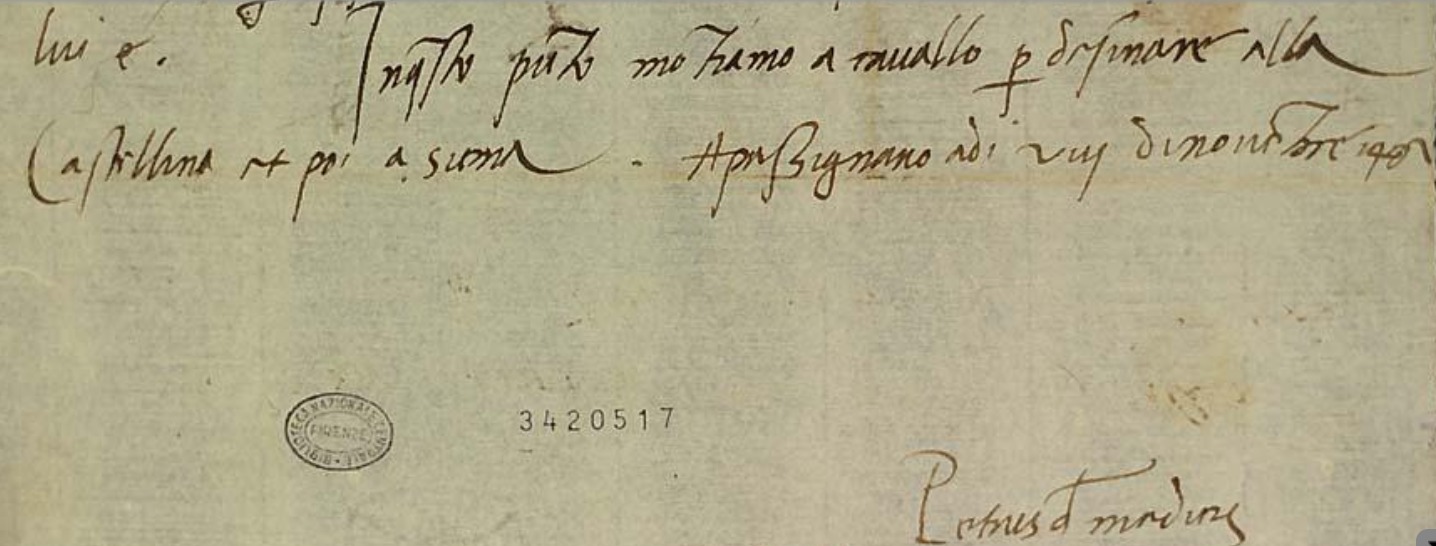 lui e.
Inq̄sto pūto mōtiamo a cauallo p desinare alla
Castellina et poi a siena. A passignano adi viij di nouēbre
BIBLIOTECA NAZIONALE CENTRALE
FIRENZE
3420517
Petrus d medices